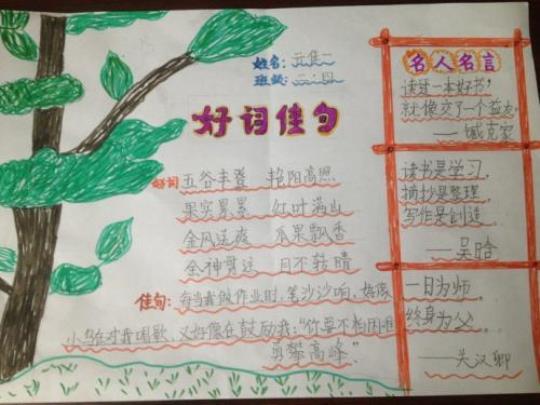 姓名:
班级: 二.四
好词佳句
好词 五谷丰登 艳阳高照
果实累累 红叶满山
金风送爽 瓜果飘香
会神贯运 目不转睛
佳句: 每当我做作业时,笔沙沙响,好像
小鸟在对我唱歌,又好像在鼓励我:“你要不怕困难
勇攀高峰”.
名人名言
读过一本好书,
就像交了一个益友.
——臧克家
读书是学习,
摘抄是整理,
写作是创造.
——吴晗
一日为师,
终身为父.
——关汉卿